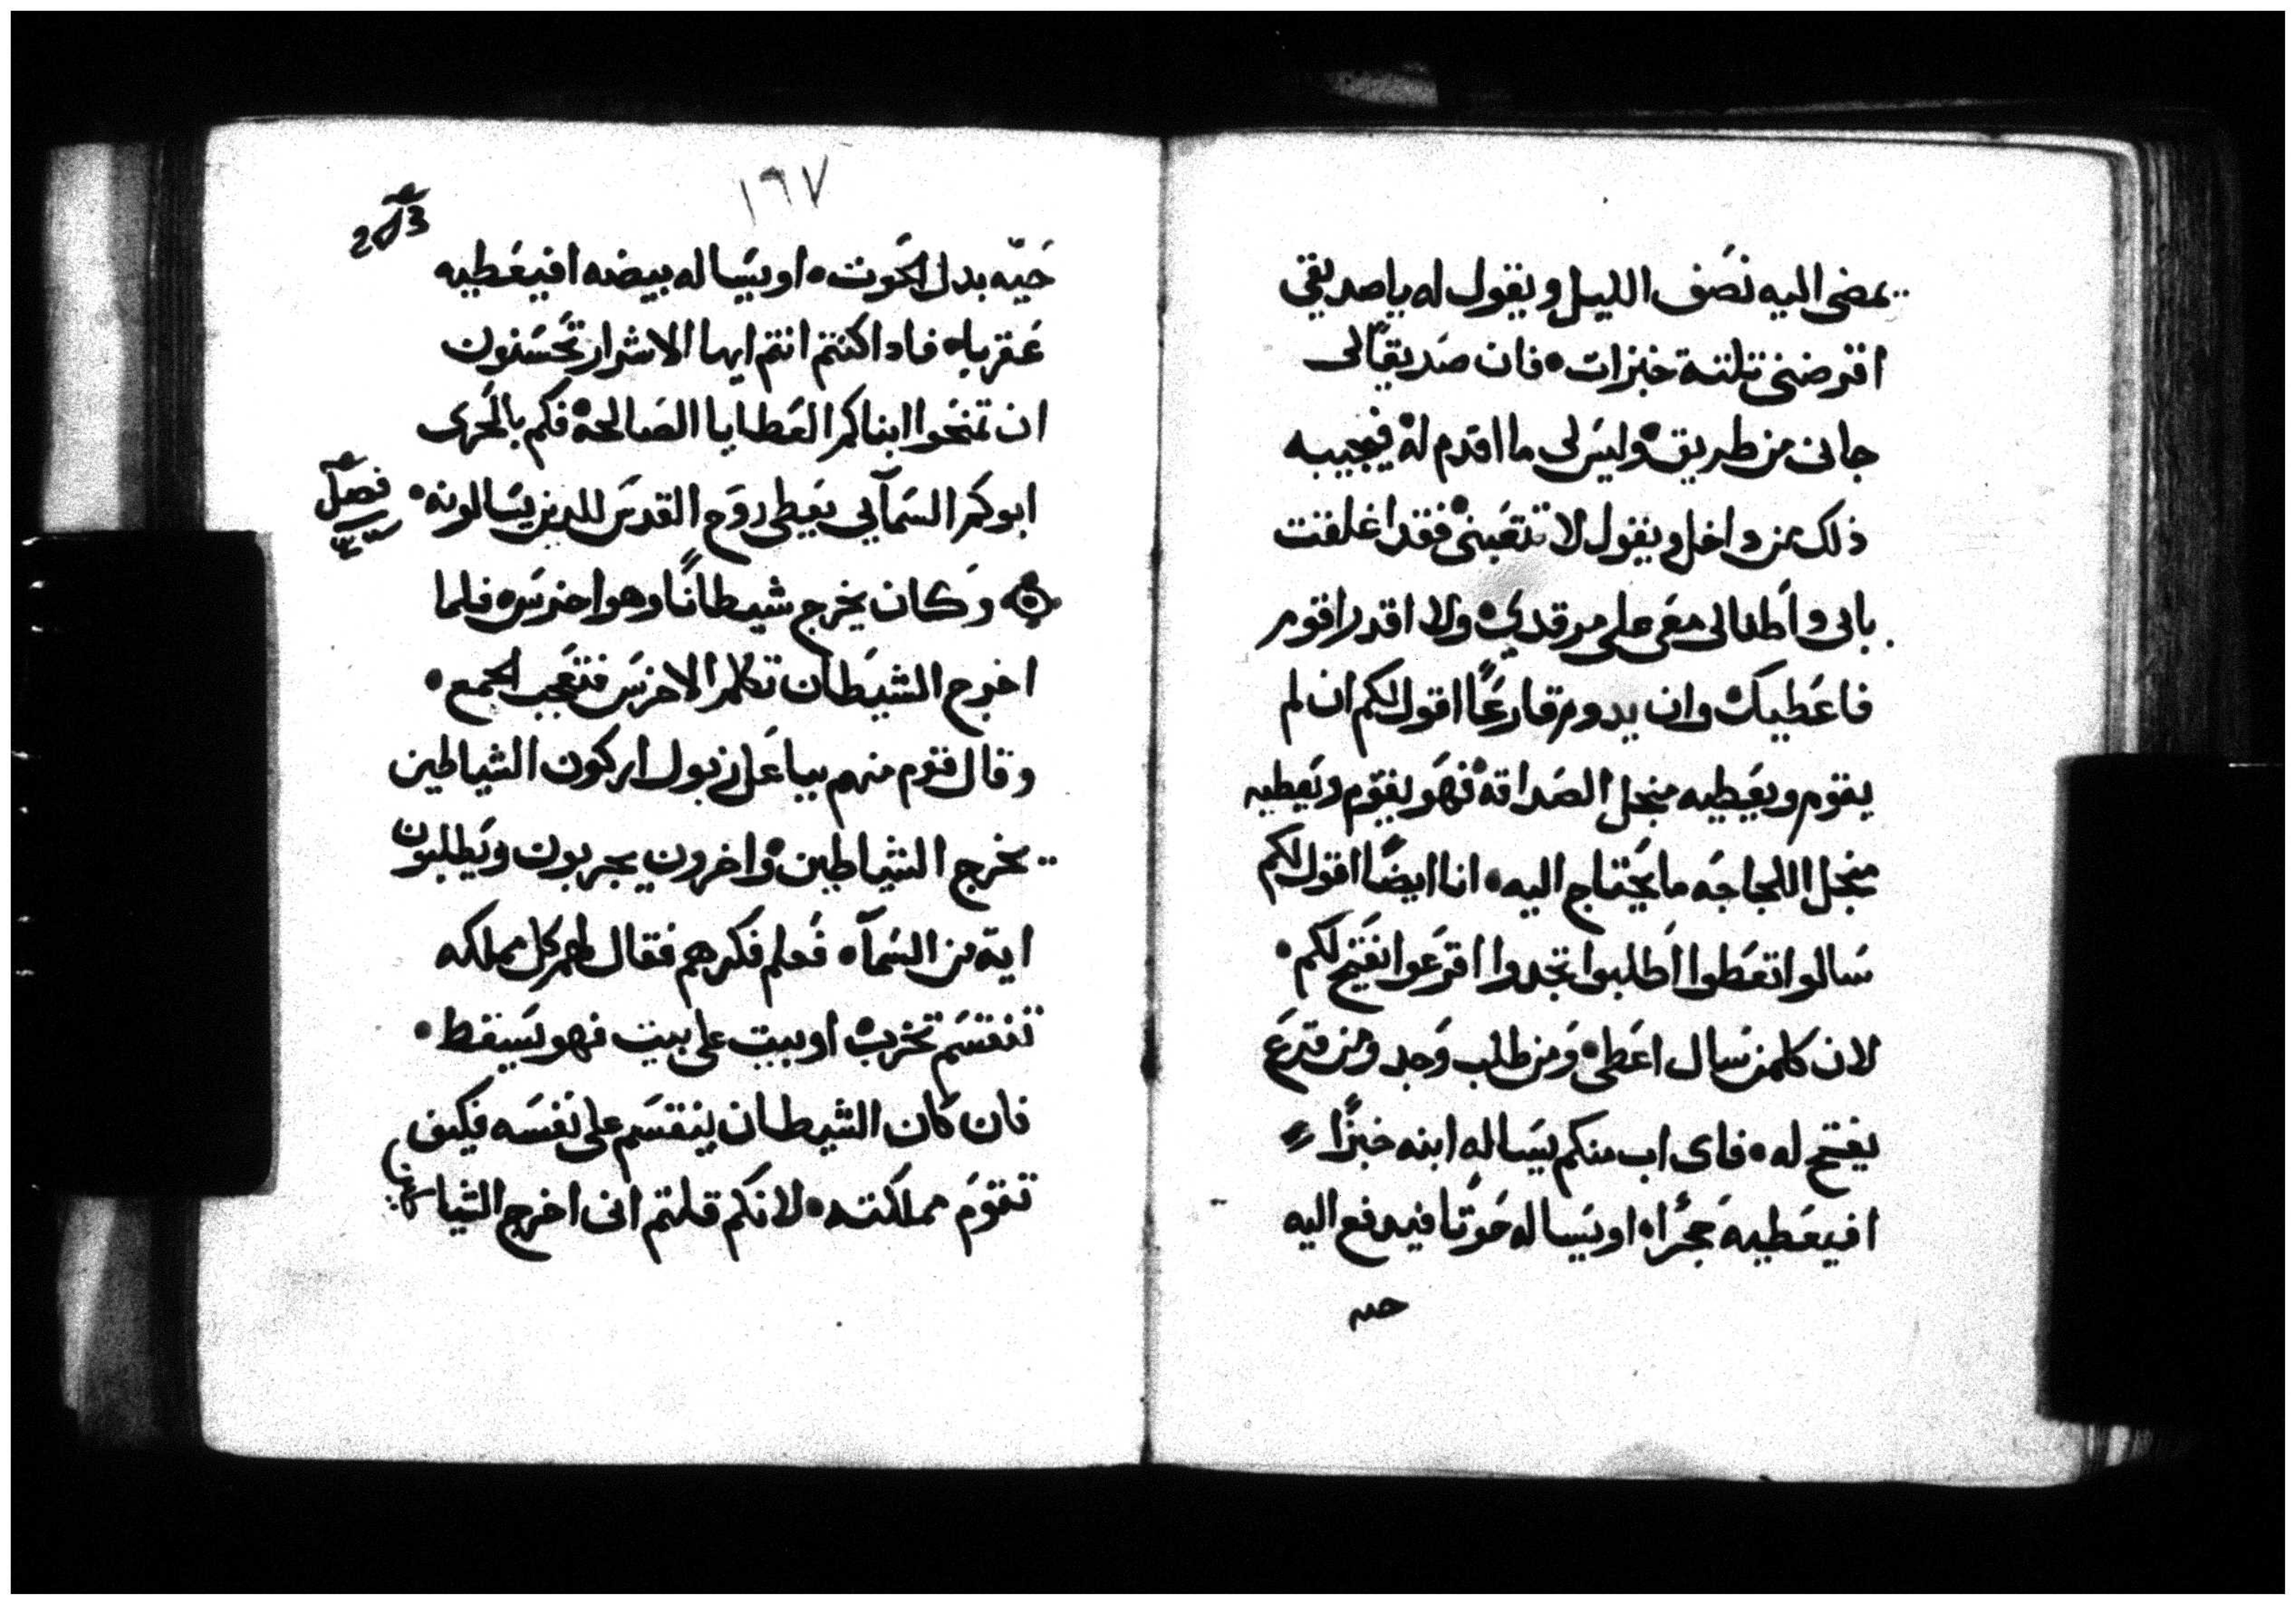 يمضى اليه نصف الليل ويقول له ياصديقي
اقرضنى تلتة خبزات فان صديقًا لى
جانى من طريق وليس لى ما اقدم له فيجيبه
ذلك من داخل ويقول لا تتعبنى فقد اغلقت
بابى واطفالى معى على مرقدي ولا اقدر اقوم
فاعطيك وان يدوم قارعًا اقول لكم ان لم
يقوم ويعطيه منجل الصداقة فهو يقوم ويعطيه
منجل اللجاجه ما يحتاج اليه انا ايضًا اقول لكم
سالوا تعطوا اطلبوا تجدوا اقرعوا يفتح لكم
لان كلمن سال اعطى ومن طلب وجد ومن قرع
يفتح له فاى اب منكم يساله ابنه خبزًا
افيعطيه حجرًا او يساله حوتًا فيدفع اليه
حيه
١٦٧
حيّه بدل الحوت او يساله بيضه افيعطيه
عقربا فادا كنتم انتم ايها الاشرار تحسنون
ان تمنحوا ابناكم العطايا الصالحة فكم بالحرى
ابوكم السمآيي يعطى روح القدس للدين يسالونه
فصل
وكان يخرج شيطانًا وهو اخرس فلما
اخرج الشيطان تكلم الاخرس فتعجب الجمع
وقال قوم منهم بباعلزبول اركون الشياطين
يخرج الشياطين واخرون يجربون ويطلبون
اية من السمآ فعلم فكرهم فقال لهم كل مملكه
تنقسم تخرب او بيت على بيت فهو يسقط
فان كان الشيطان ينقسم على نفسه فكيف
تقوم مملكته لانكم قلتم انى اخرج الشيا